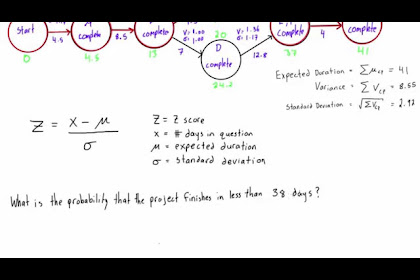 Start
complete
complete
complete
V: 1.00
σ: 1.00
20
V: 1.36
σ: 1.17
complete
complete
4.5
8.5
7
D
complete
12.8
4
0
4.5
13
37
41
24.2
Expected Duration = Σ μcp = 41
Variance = Σ Vcp = 8.55
Standard Deviation = √Σ Vcp = 2.92
Z = x - μ / σ
Z = Z score
x = # days in question
μ = expected duration
σ = standard deviation
What is the probability that the project finishes in less than 38 days?